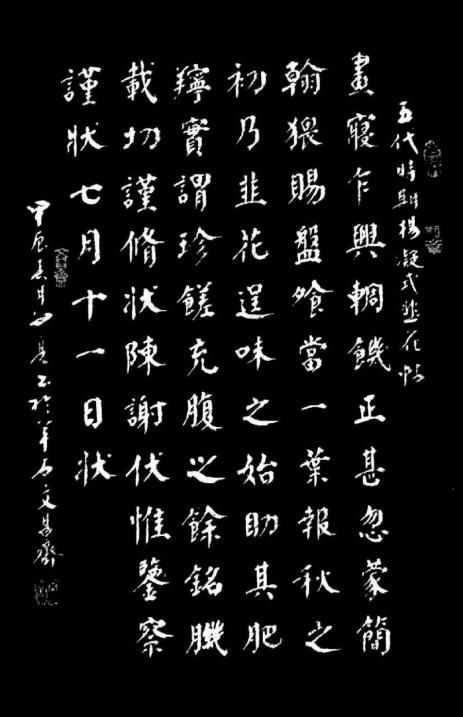 五代時期楊凝式韭花帖
晝寢乍興輖饑正甚忽蒙簡
翰猥賜盤飧當一葉報秋之
初乃韭花逞味之始助其肥
羜實謂珍饈充腹之餘銘肌
載切謹脩狀陳謝伏惟鑒察
謹狀七月十一日狀
甲辰 月 文昌齋